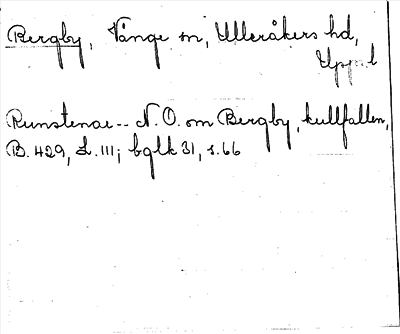 Bergby, Vänge sn, Ulleråkers hd,
Uppl
Runstenar-- N.O. om Bergby, kullfallen,
B. 429, L. 111; bqlk 31, s. 66